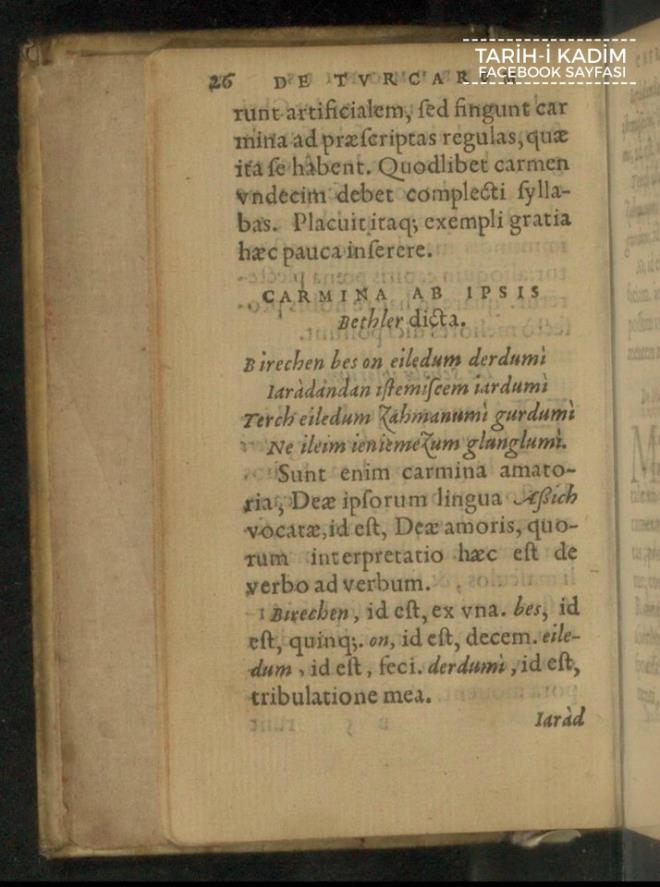 TARİH-İ KADİM
FACEBOOK SAYFASI
26 DE TVRCARVM
runt artificialem, ſed fingunt car
mina ad præſcriptas regulas, quæ
ita ſe habent. Quodlibet carmen
vndecim debet complecti ſylla-
bas. Placuit itaq; exempli gratia
hæc pauca inſerere.
CARMINA AB IPSIS
Bethler dicta.
Birechen bes on eiledum derdumì
Iaràdandan iſtemiſcem iardumì
Terch eiledum Zahmanumì gurdumì
Ne ileim ieniemeZum glunglumì.
Sunt enim carmina amato-
ria, Deæ ipſorum lingua Aßich
vocatæ, id eſt, Deæ amoris, quo-
rum interpretatio hæc eſt de
verbo ad verbum.
Birechen, id eſt, ex vna. bes, id
eſt, quinq;. on, id eſt, decem. eile-
dum, id eſt, feci. derdumì, id eſt,
tribulatione mea.
Iaràd